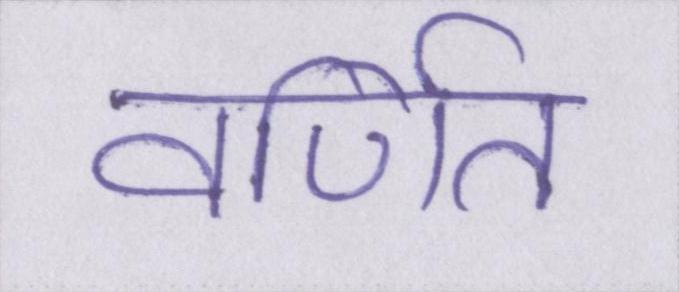 वर्णित